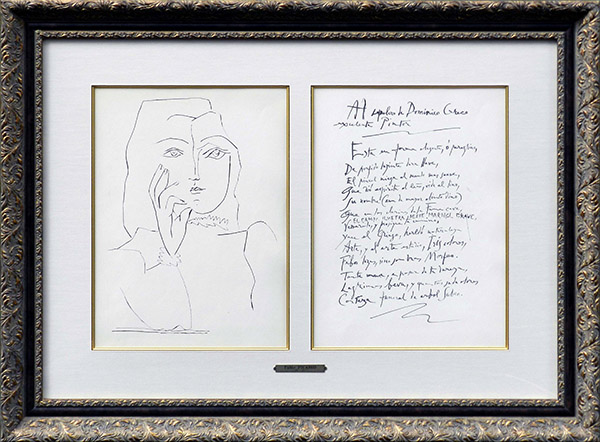 Al sepulcro de Dominico Greco
excelente Pintor
Esta en forma elegante, ó peregrino,
De porfido luciente dura llave,
El pincel niega al mundo mas suave,
Que dió espiritu al leño, vida al lino,
Su nombre (aun de mayor aliento dino)
Que en los clarines de la Fama cabe,
EL CAMPO ILUSTRA DESTE MARMOL GRAVE.
Venerale, y prosigue tu camino.
Yace el Griego, heredó
Arte, y el arte estudio, Iris colores,
Febo luzes, sino sombras Morfeo.
Tanta urna, a pesar de su dureza,
Lagrimas beva, y quantos suda olores
Corteza funeral de arbol Sabeo.